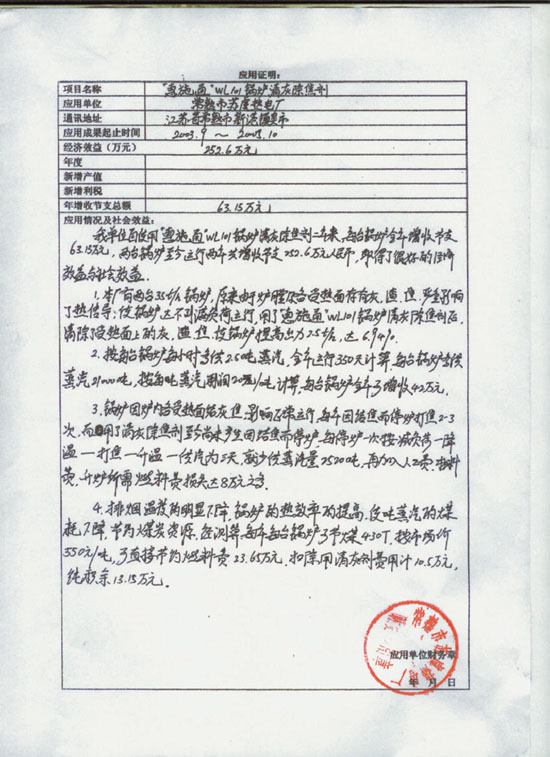 应用证明：
项目名称 "惠施面"WL101锅炉清灰除焦剂
应用单位 常熟市苏虞热电厂
通讯地址 江苏省常熟市新港镇东市
应用成果起止时间 2003.9 ～ 2005.10
经济效益（万元） 252.6万元
年度
新增产值
新增利税
年增收节支总额 63.15万元
应用情况及社会效益：
我单位自使用"惠施面"WL101锅炉清灰除焦剂二年来，每台锅炉全年增收节支
63.15万元，两台锅炉至今运行两年共增收节支252.6万人民币，取得了很好的经济
效益与社会效益。
1. 本厂有两台35t/h锅炉，原来由于炉膛及各受热面存有灰、渣、焦，严重影响
了热传导，使锅炉达不到满负荷运行，用了"惠施面"WL101锅炉清灰除焦剂后，
清除了受热面上的灰、渣、焦，使锅炉提高出力2.5t/h，达6.94%。
2. 按每台锅炉每小时多供2.5吨蒸汽，全年运行350天计算，每台锅炉多供
蒸汽21000吨，按每吨蒸汽利润20元/吨计算，每台锅炉全年可增收42万元。
3. 锅炉因炉内各受热面结灰焦，影响正常运行，每年因结焦而停炉打焦2-3
次，而用了清灰除焦剂至今尚未产生因结焦而停炉，每停炉一次按减负荷—降
温—打焦—升温—供汽为三天，就少供蒸汽量2520吨，再加人工费、材料
费、升炉所需燃料费损失达8万元之多。
4. 排烟温度的明显下降，锅炉的热效率的提高，使吨蒸汽的煤
耗下降，节约煤炭资源，经测算，每年每台锅炉可节煤430T，按市场价
550元/吨，可直接节约燃料费23.65万元，扣除用清灰剂费用计10.5万元，
纯获余13.15万元。
应用单位财务章
年 月 日